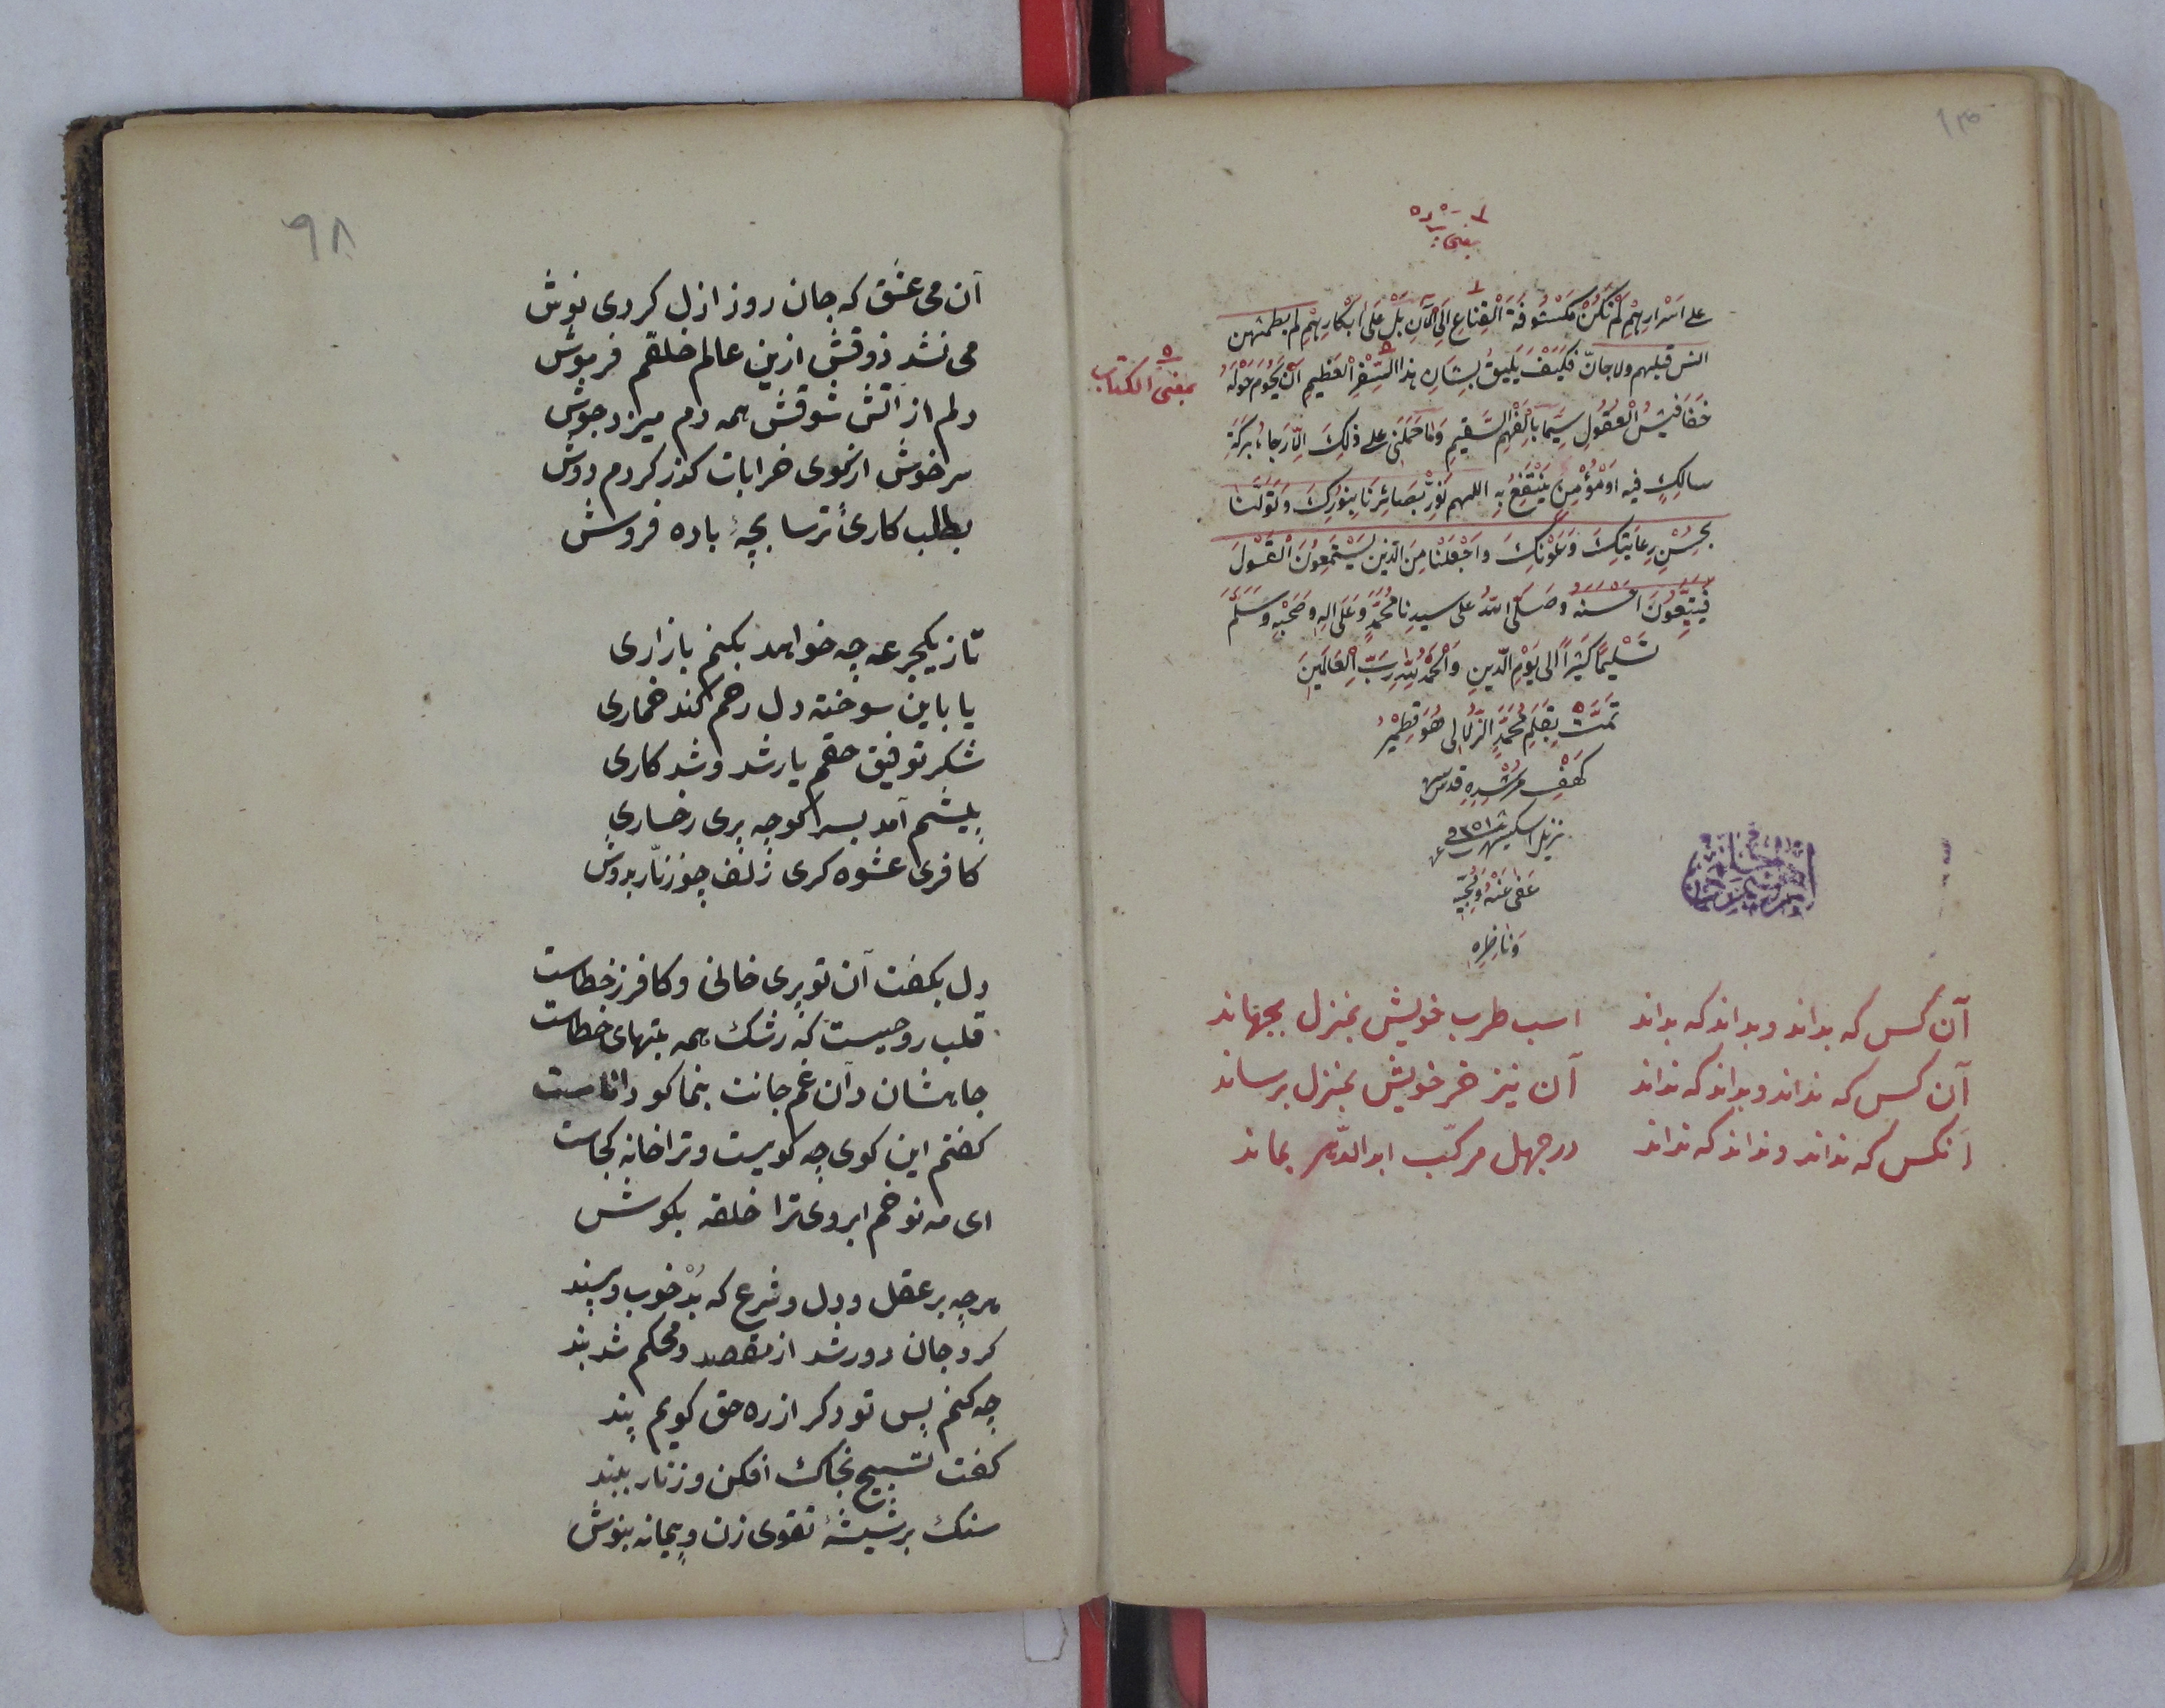 على اسرارهم لم تكن مكشوفة القناع الى الآن بل على ابكارهم لم يطمثهن
انس قبلهم ولا جانّ فكيف يليق بشان هذا السفر العظيم ان يحوم حوله
بمعنى الكتاب
خفافيش العقول سيما بالفهم السقيم وما حملنى على ذلك الّا رجاء بركة
سالك فيه او مؤمن ينتفع به اللهم نوّر بصائرنا بنورك وتولّنا
بحسن رعايتك وعونك واجعلنا من الذين يستمعون القول
فيتبعون احسنه وصلى الله على سيدنا محمد وعلى اله وصحبه وسلم
تسليما كثيرا الى يوم الدين والحمد لله رب العالمين
تمت بقلم محمد الزلالى هو قطمير
كهف مرشده قدس سره
نزيل اسكيشهر
عفى عنه ولمحبيه
وناظره
آن كس كه بداند وبداند كه بداند اسب طرب خويش بمنزل بجهاند
آن كس كه نداند وبداند كه نداند آن نيز خر خويش بمنزل برساند
آنكس كه نداند ونداند كه نداند در جهل مركّب ابد الدّهر بماند
٩٨
آن مى عشق كه جان روز ازل كردى نوش
مى نشد ذوقش ازين عالم خلقم فرموش
دلم از آتش شوقش همه دم ميزد جوش
سرخوش از كوى خرابات كذر كردم دوش
بطلب كارئ ترسا بچهٔ باده فروش
تاز يكجرعه چه خواهد بكنم بازارى
يا باين سوخته دل رحم كند خمارى
شكر توفيق حقم يار شد وشد كارى
پيشم آمد بسر كوچه پرى رخسارى
كافرى عشوه كرى زلف چو زنّار بدوش
دل بكفت آن تو پرى خانى وكافر ز خطاست
قلب روحيست كه رشك همه بتهاى خطاست
جاهشان دآن غم جانت بنما كو داناست
كفتم اين كوى چه كويست وترا خانه كجاست
اى مه نو خم ابروى ترا حلقه بكوش
هرچه بر عقل ودل وشرع كه بد خوب وپسند
كرد جان دور شد از مقصد ومحكم شد بند
چه كنم پس تو دكر از ره حق كويم پند
كفت تسبيح بخاك افكن وزنار ببند
سنك بر شيشهٔ تقوى زن وپيمانه بنوش